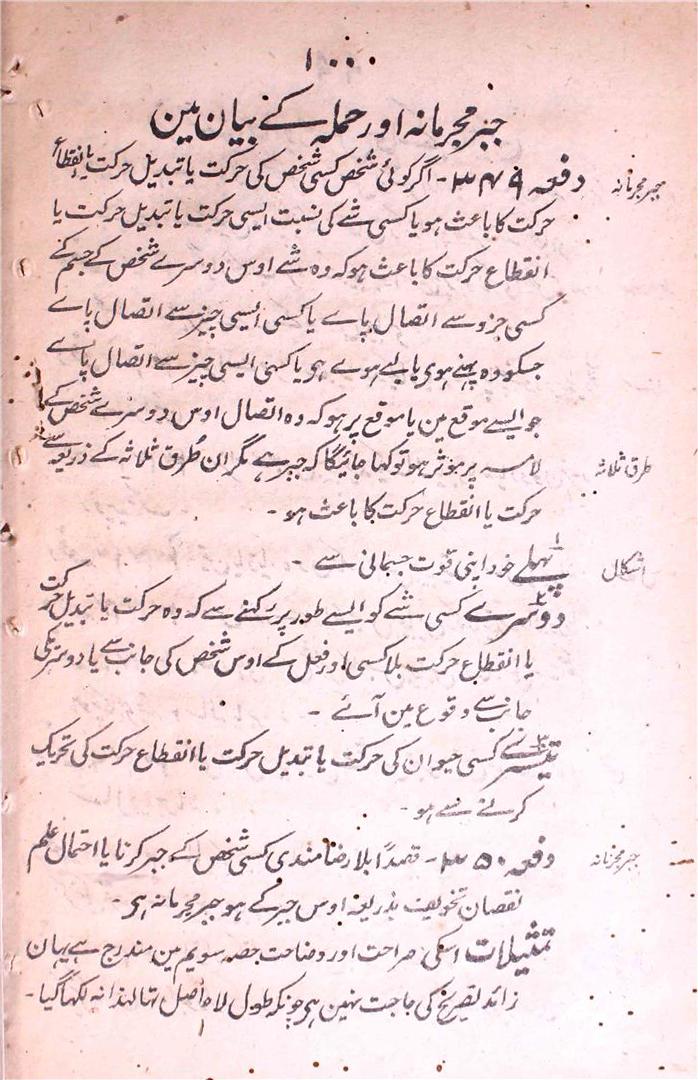 ۱۰۰
جبر مجرمانہ اور حملہ کے بیان مین
جبر مجرمانہ
دفعہ ۳۴۹ - اگر کوئی شخص کسی شخص کی حرکت یا تبدیل حرکت یا انقطاع
حرکت کا باعث ہو یا کسی شے کی نسبت ایسی حرکت یا تبدیل حرکت یا
انقطاع حرکت کا باعث ہو کہ وہ شے اوس دوسرے شخص کے جسم کے
کسی جزو سے اتصال پاے یا کسی ایسی چیز سے اتصال پاے
جسکو وہ پہنے ہوی یا لیے ہوے ہی یا کسی ایسی چیز سے اتصال پاے
جو ایسے موقع مین یا موقع پر ہو کہ وہ اتصال اوس دوسرے شخص کے
طرق ثلاثہ
لامسہ پر مؤثر ہو تو کہا جائیگا کہ جبر ہے مگر ان طُرق ثلاثہ کے ذریعہ سے
حرکت یا انقطاع حرکت کا باعث ہو -
اشکال
پہلے خود اپنی قوت جسمانی سے -
دوسرے کسی شے کو ایسے طور پر رکھنے سے کہ وہ حرکت یا تبدیل حرکت
یا انقطاع حرکت بلا کسی اور فعل کے اوس شخص کی جانب سے یا دوسریکی
جانب سے وقوع مین آئے -
تیسرے کسی حیوان کی حرکت یا تبدیل حرکت یا انقطاع حرکت کی تحریک
کرنے سے ہو -
جبر مجرمانہ
دفعہ ۳۵۰ - قصداً بلا رضامندی کسی شخص کے جبر کرنا یا احتمال علم
نقصان تخویف بذریعہ اوس جبر کے ہو جبر مجرمانہ ہی -
تمثیلات اسکی صراحت اور وضاحت حصہ سویم مین مندرج ہے یہان
زائد تصریح کی حاجت نہین ہی چونکہ طول لا حاصل تہا لہذا نہ لکہا گیا -